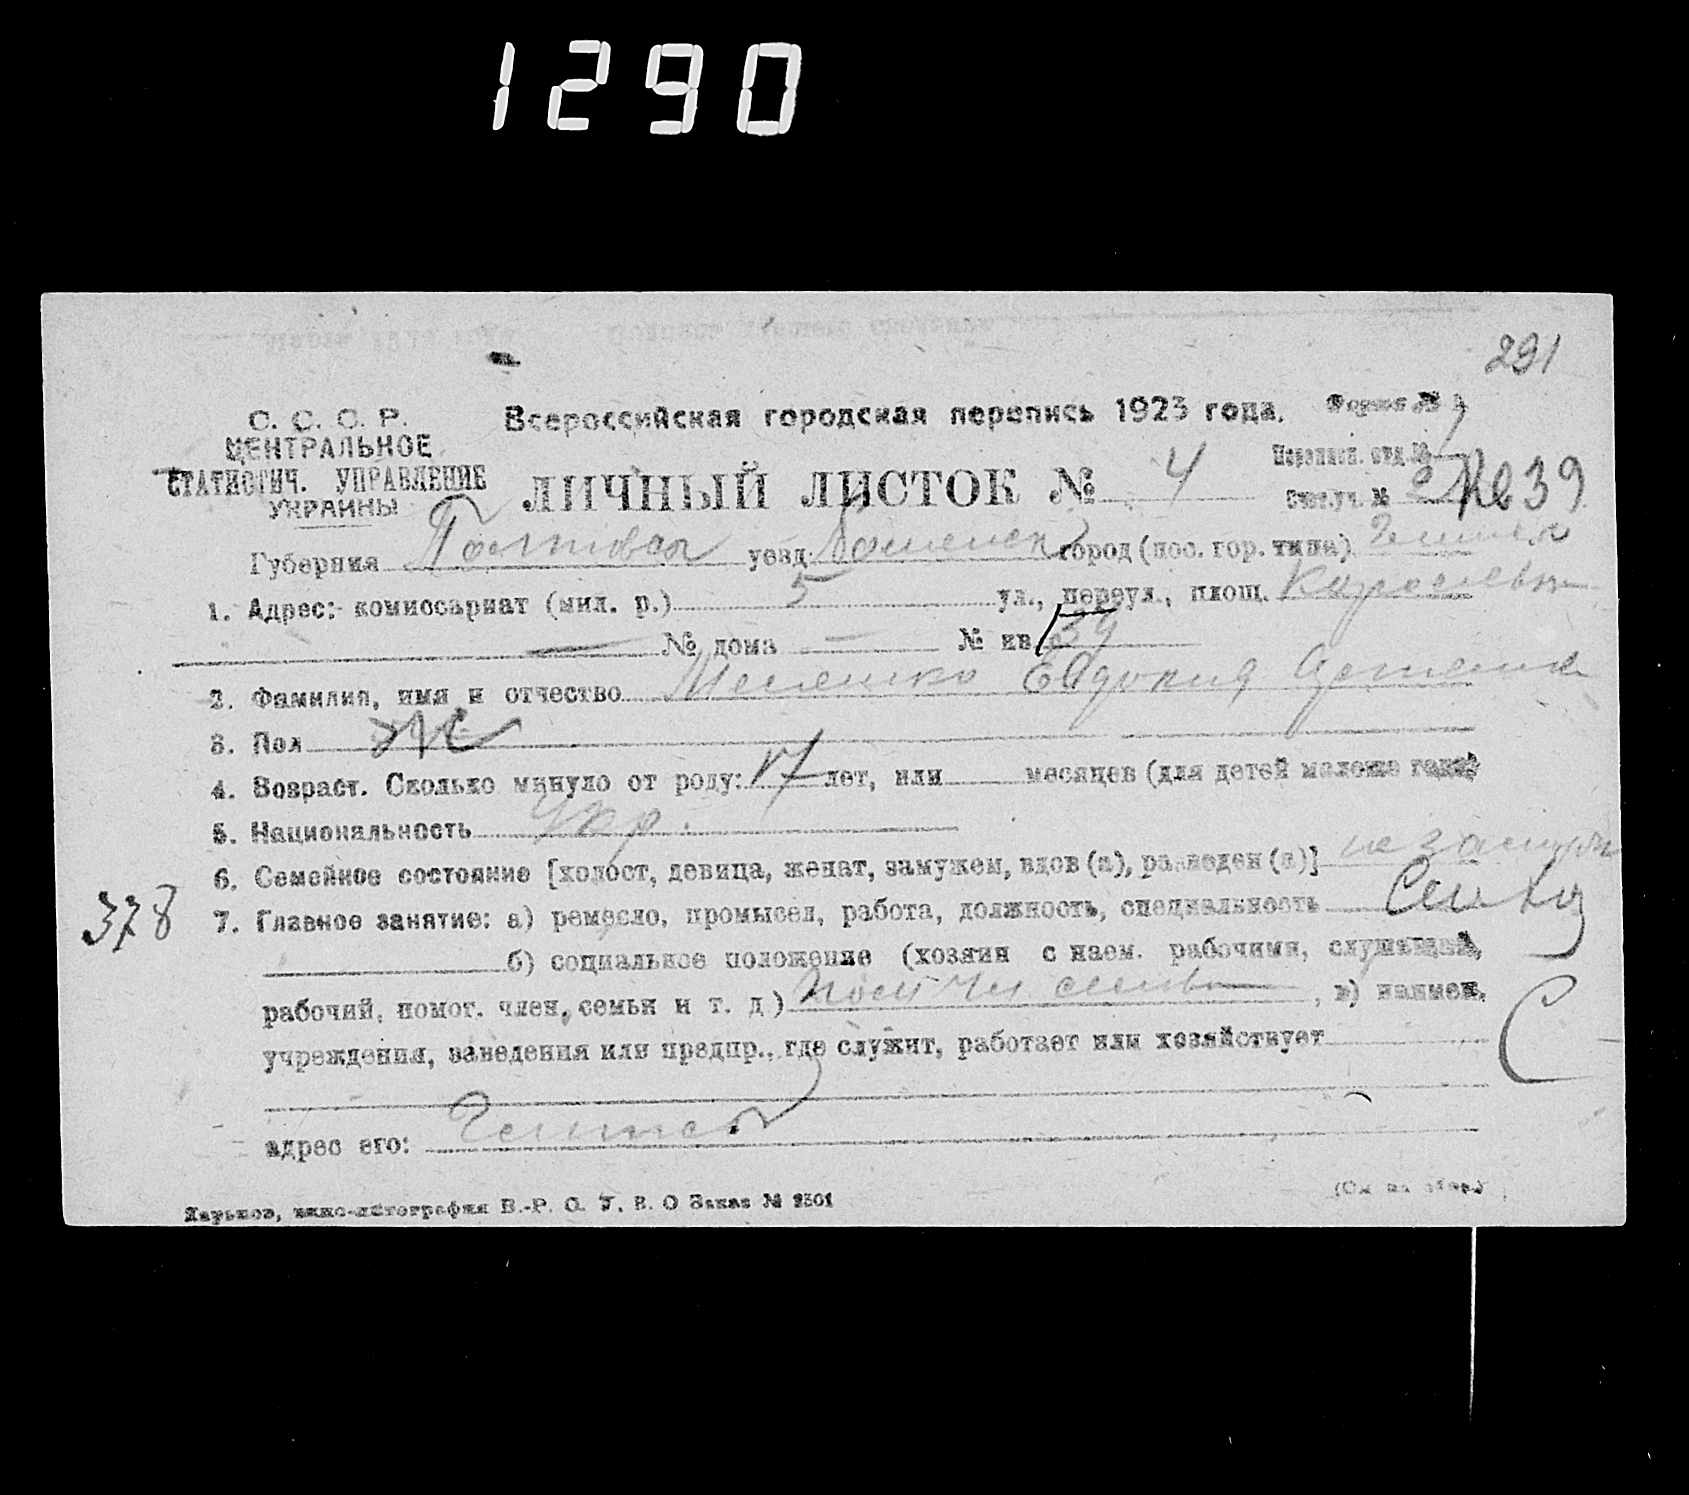 1290
291
С. С. С. Р.
ЦЕНТРАЛЬНОЕ
СТАТИСТИЧ. УПРАВЛЕНИЕ
УКРАИНЫ
Всероссийская городская перепись 1923 года.
Форма №
ЛИЧНЫЙ ЛИСТОК № 4
Переписн. отд. №
Счет. уч. № Кв 39
Губерния Полтавск уезд город (пос. гор. типа)
1. Адрес: комиссариат (мил. р.) 5 ул., переул., площ.
— № дома — № кв 39
2. Фамилия, имя и отчество Евдокия
3. Пол ж
4. Возраст. Сколько минуло от роду: 17 лет, или месяцев (для детей моложе года)
5. Национальность Укр.
6. Семейное состояние [холост, девица, женат, замужем, вдов (а), разведен (а)] не замужн
378
7. Главное занятие: а) ремесло, промысел, работа, должность, специальность
б) социальное положение (хозяин с наем. рабочими, служащий,
рабочий, помог. член, семьи и т. д.) пом чл семьи, в) наимен.
учреждения, заведения или предпр., где служит, работает или хозяйствует
С
адрес его:
(См на обор.)
Харьков, цинко-литография В.-Р. О. У. В. О Заказ № 2501